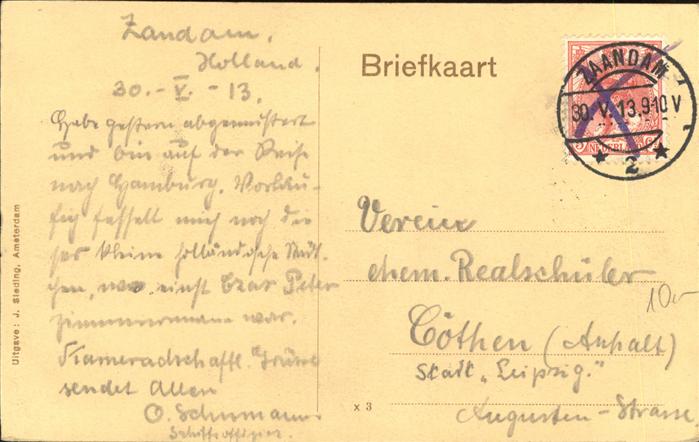 Zandam,
Holland.
30. - V. - 13.
Habe gestern abgemustert
und bin auf der Reise
nach Hamburg. Vorläu-
fig fesselt mich noch die
ses kleine holländische Städt-
chen, wo einst Czar Peter
Zimmermann war.
Kameradschaftl. Grüsse
sendet Allen
O. Schumann.
Schiffsoffizier.
Uitgave: J. Sleding, Amsterdam
Briefkaart
ZAANDAM
30.V.13.9-10V
2
NEDERLAND
Verein
ehem. Realschüler
Cöthen (Anhalt)
Stadt „Leipzig."
Augusten-Strasse
x 3